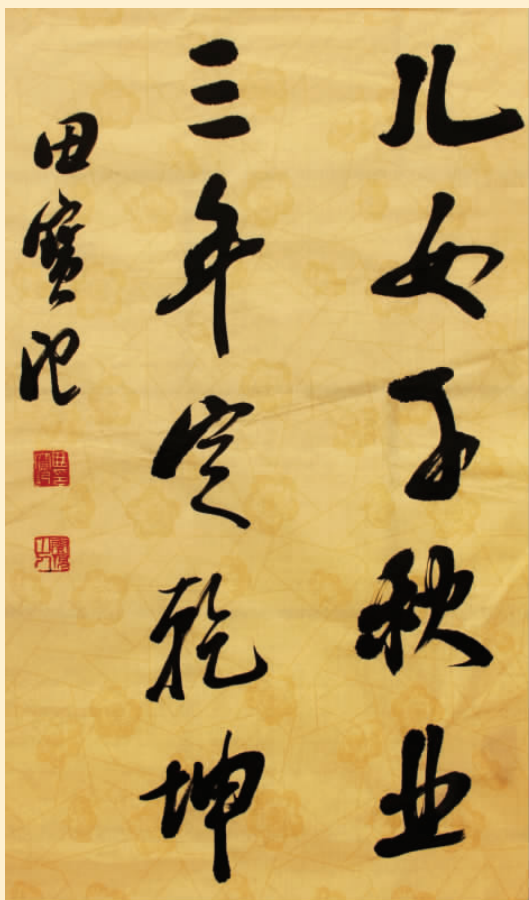 儿女千秋业
三年定乾坤
田寶池